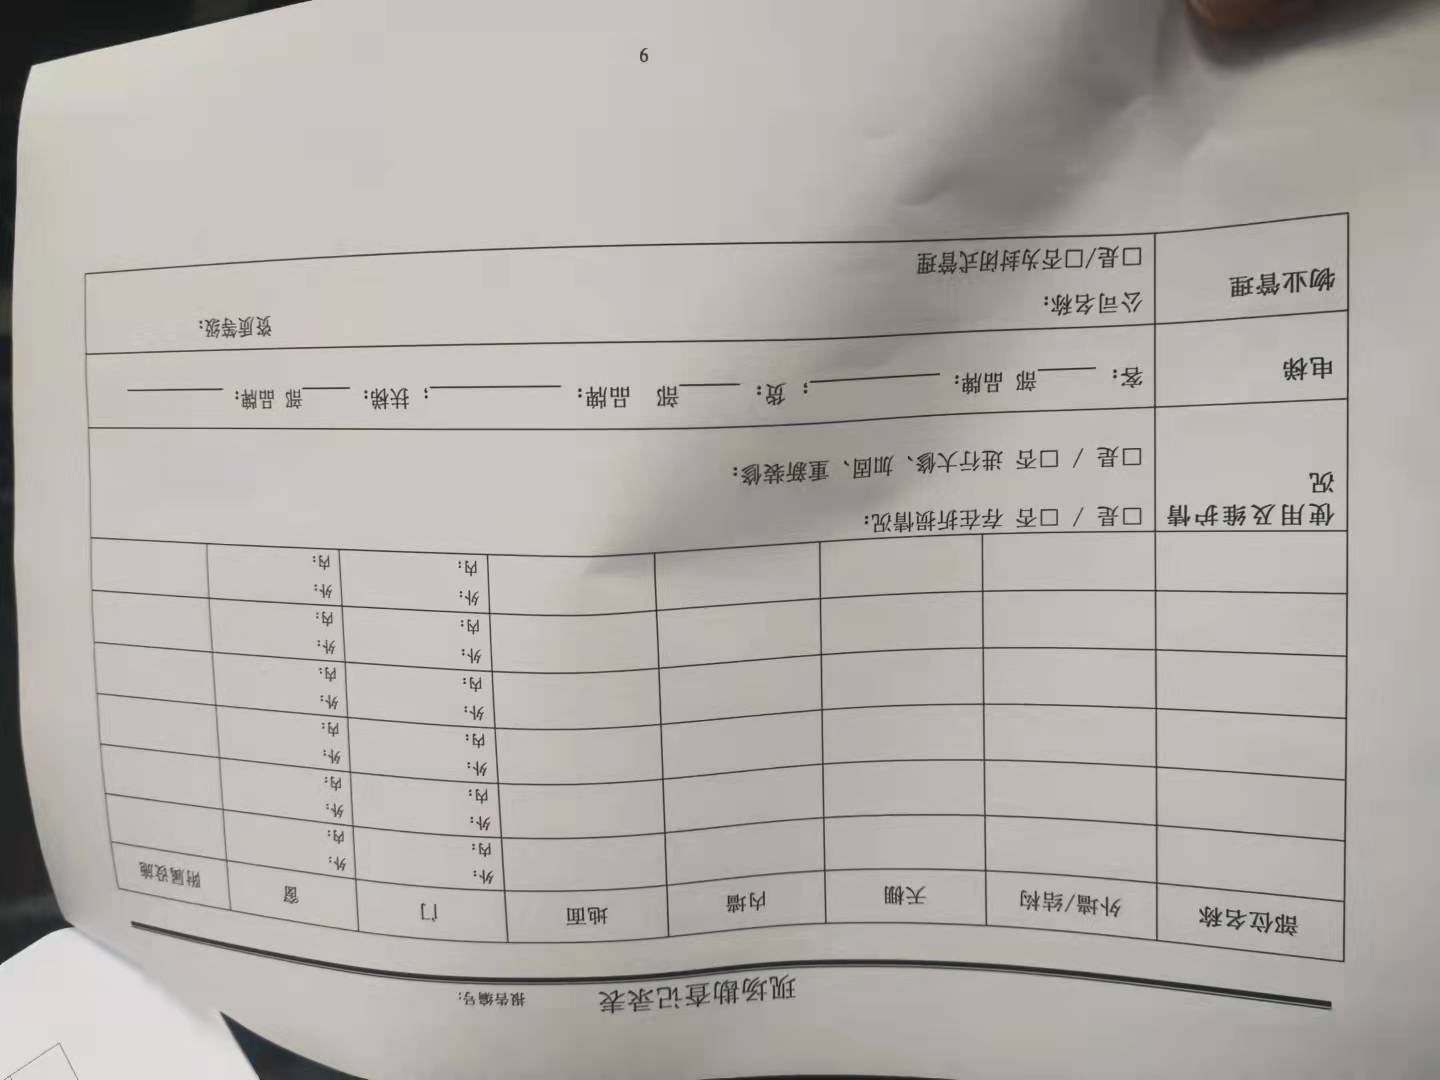 现场勘查记录表 报告编号：
部位名称 外墙/结构 天棚 内墙 地面 门 窗 附属设施
外： 外：
内： 内：
外： 外：
内： 内：
外： 外：
内： 内：
外： 外：
内： 内：
外： 外：
内： 内：
外： 外：
内： 内：
使用及维护情
况
□是 / □否 存在折损情况：
□是 / □否 进行大修、加固、重新装修：
电梯 客：____部 品牌：________；货：____部 品牌：________；扶梯：___部 品牌：______
物业管理
公司名称： 资质等级：
□是/□否为封闭式管理
9